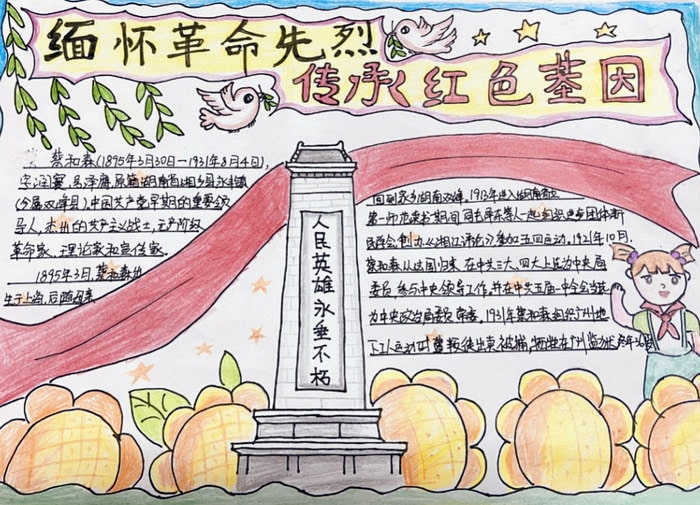 缅怀革命先烈
传承红色基因
蔡和森(1895年3月30日一1931年8月4日),
字润寰,号泽膺,原籍湖南省湘乡县永丰镇
(今属双峰县),中国共产党早期的重要领
导人,杰出的共产主义战士,无产阶级
革命家、理论家和宣传家。
1895年3月,蔡和森出
生于上海,后随母亲
人民英雄永垂不朽
回到家乡湖南双峰,1913年进入湖南省立
第一师范读书期间,同毛泽东等人一起组织进步团体新
民学会,创办《湘江评论》,参加五四运动。1921年10月
蔡和森从法国归来,在中共三大、四大上选为中央局
委员,参与中央领导工作,并在中共五届一中全会当选
为中央政治局委员、常委。1931年蔡和森组织广州地
下工人运动时,叛徒出卖被捕,牺牲在广州监狱,终年36岁